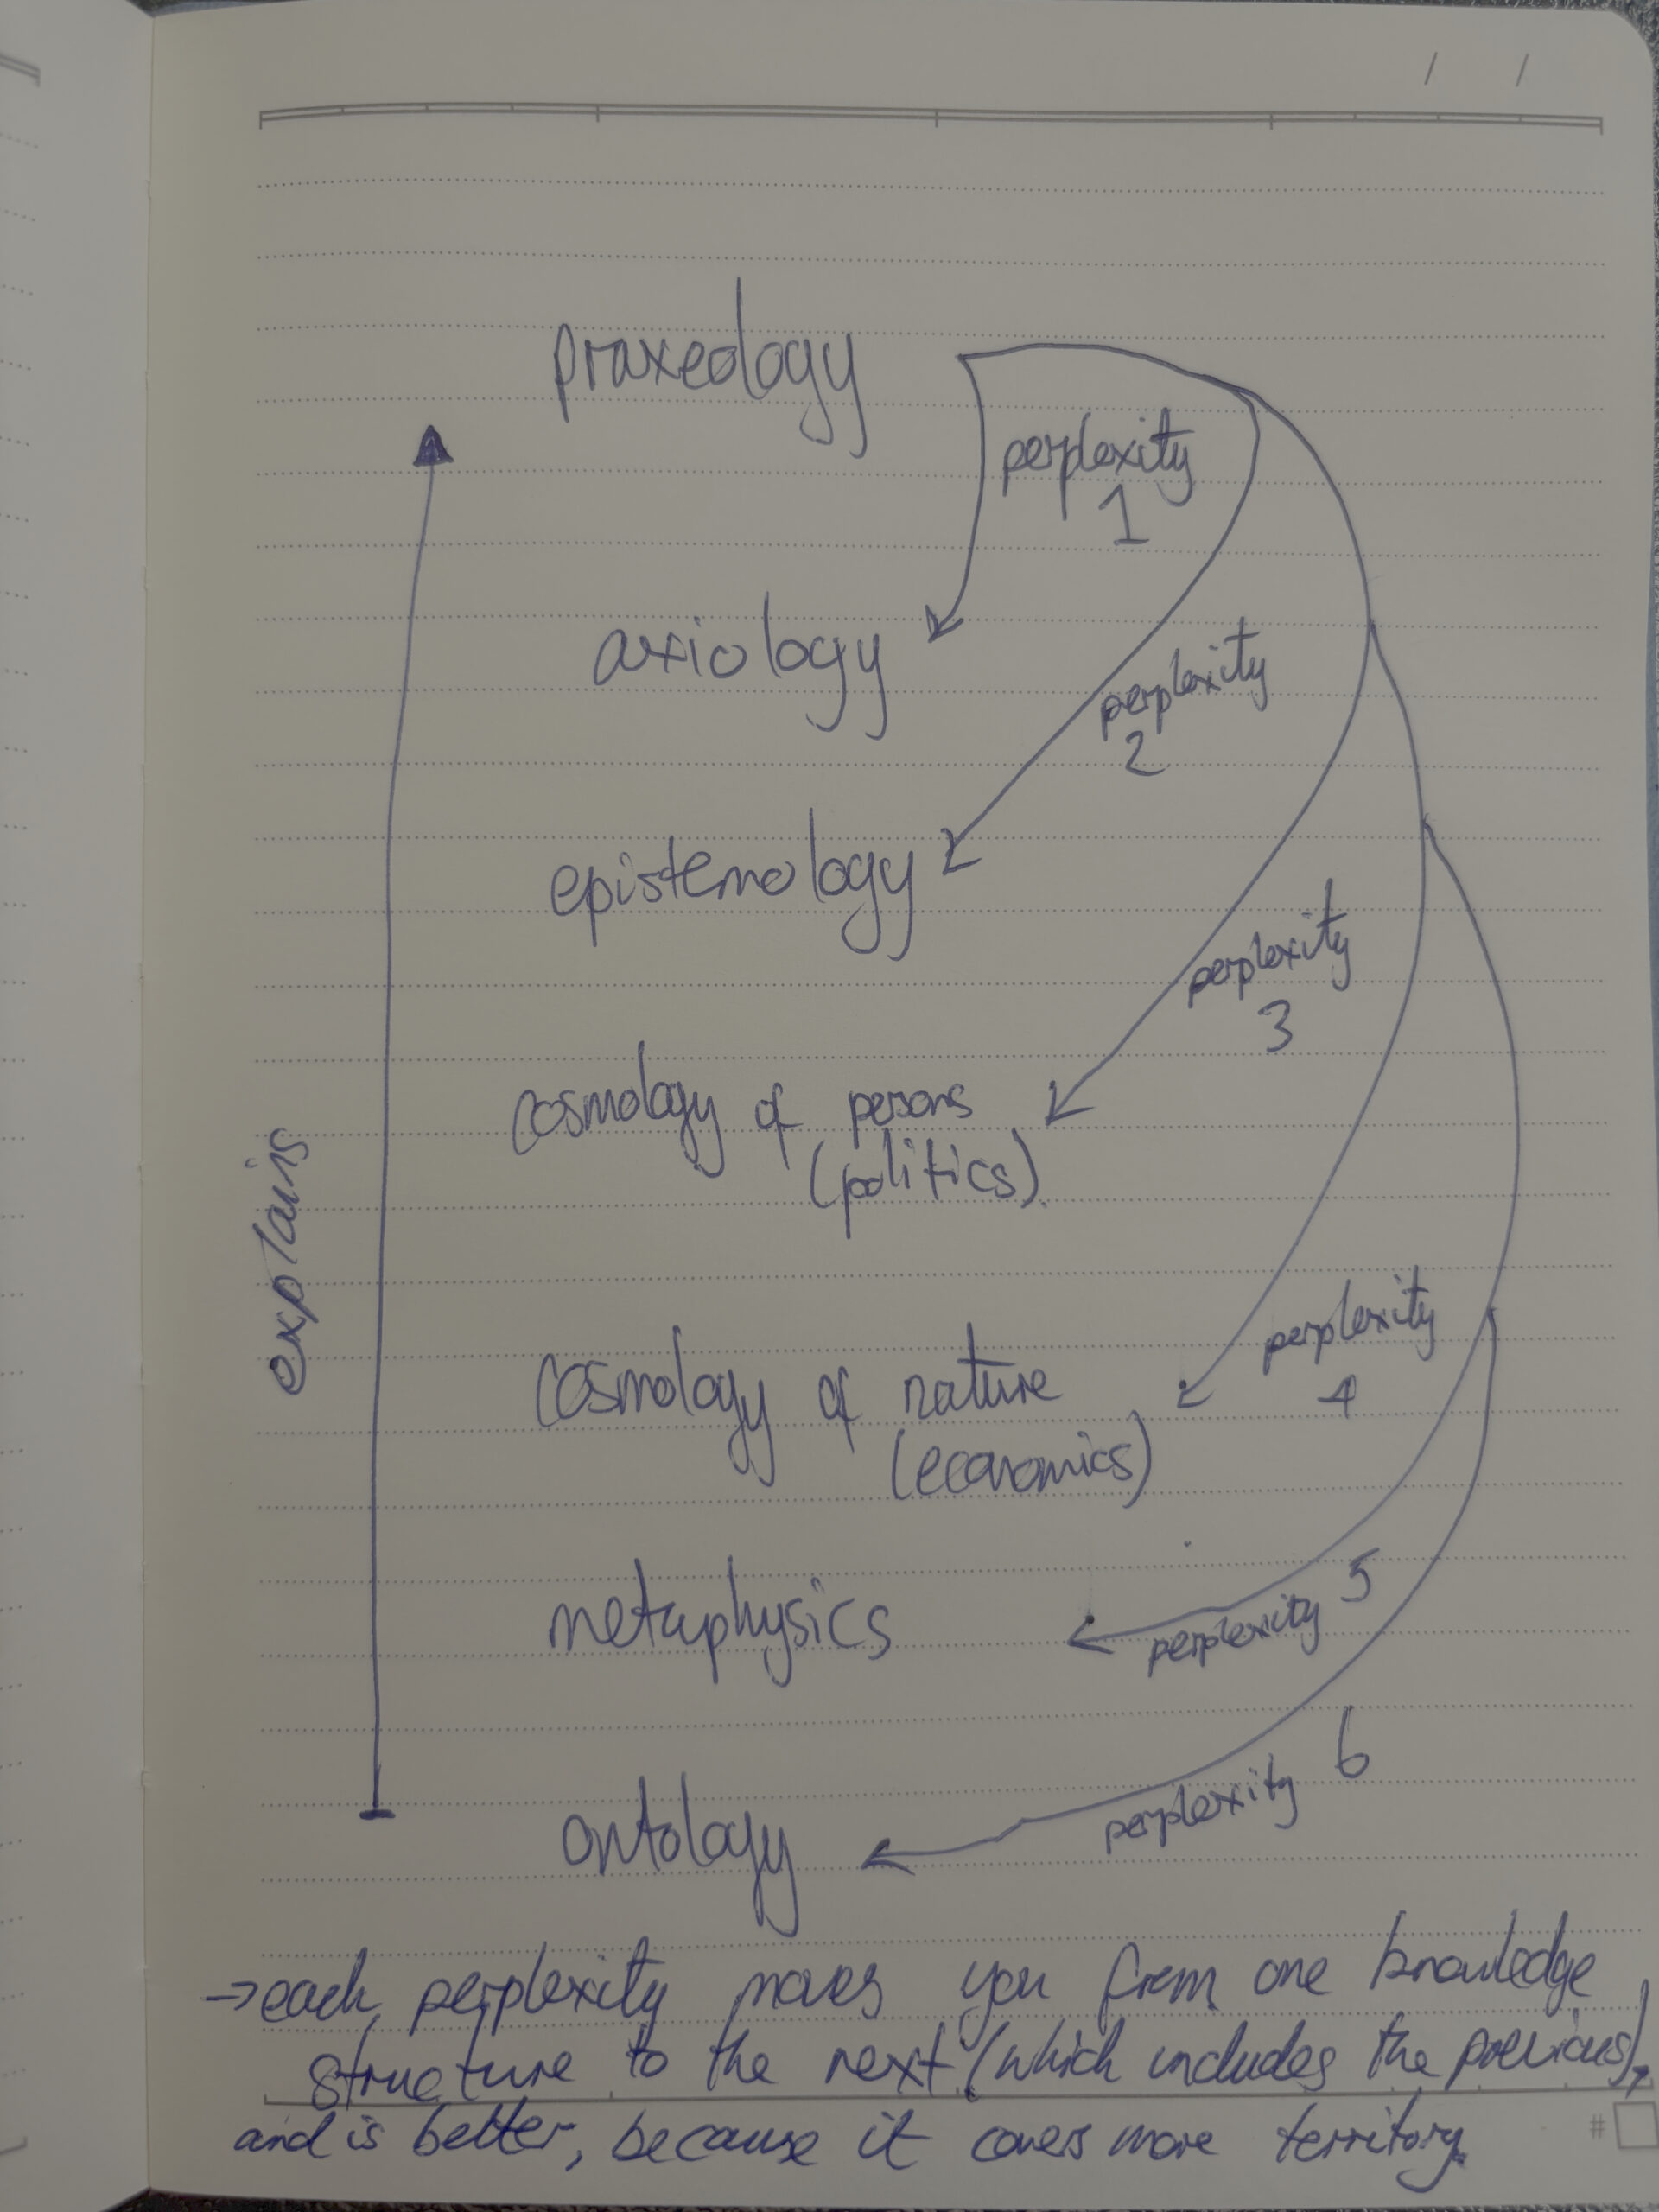 / /
praxeology
perplexity
1
axiology
perplexity
2
epistemology
perplexity
3
cosmology of persons
(politics)
explains
cosmology of nature
(economics)
perplexity
4
metaphysics
perplexity 5
ontology
perplexity 6
→ each perplexity moves you from one knowledge
structure to the next (which includes the previous),
and is better, because it covers more territory.
#